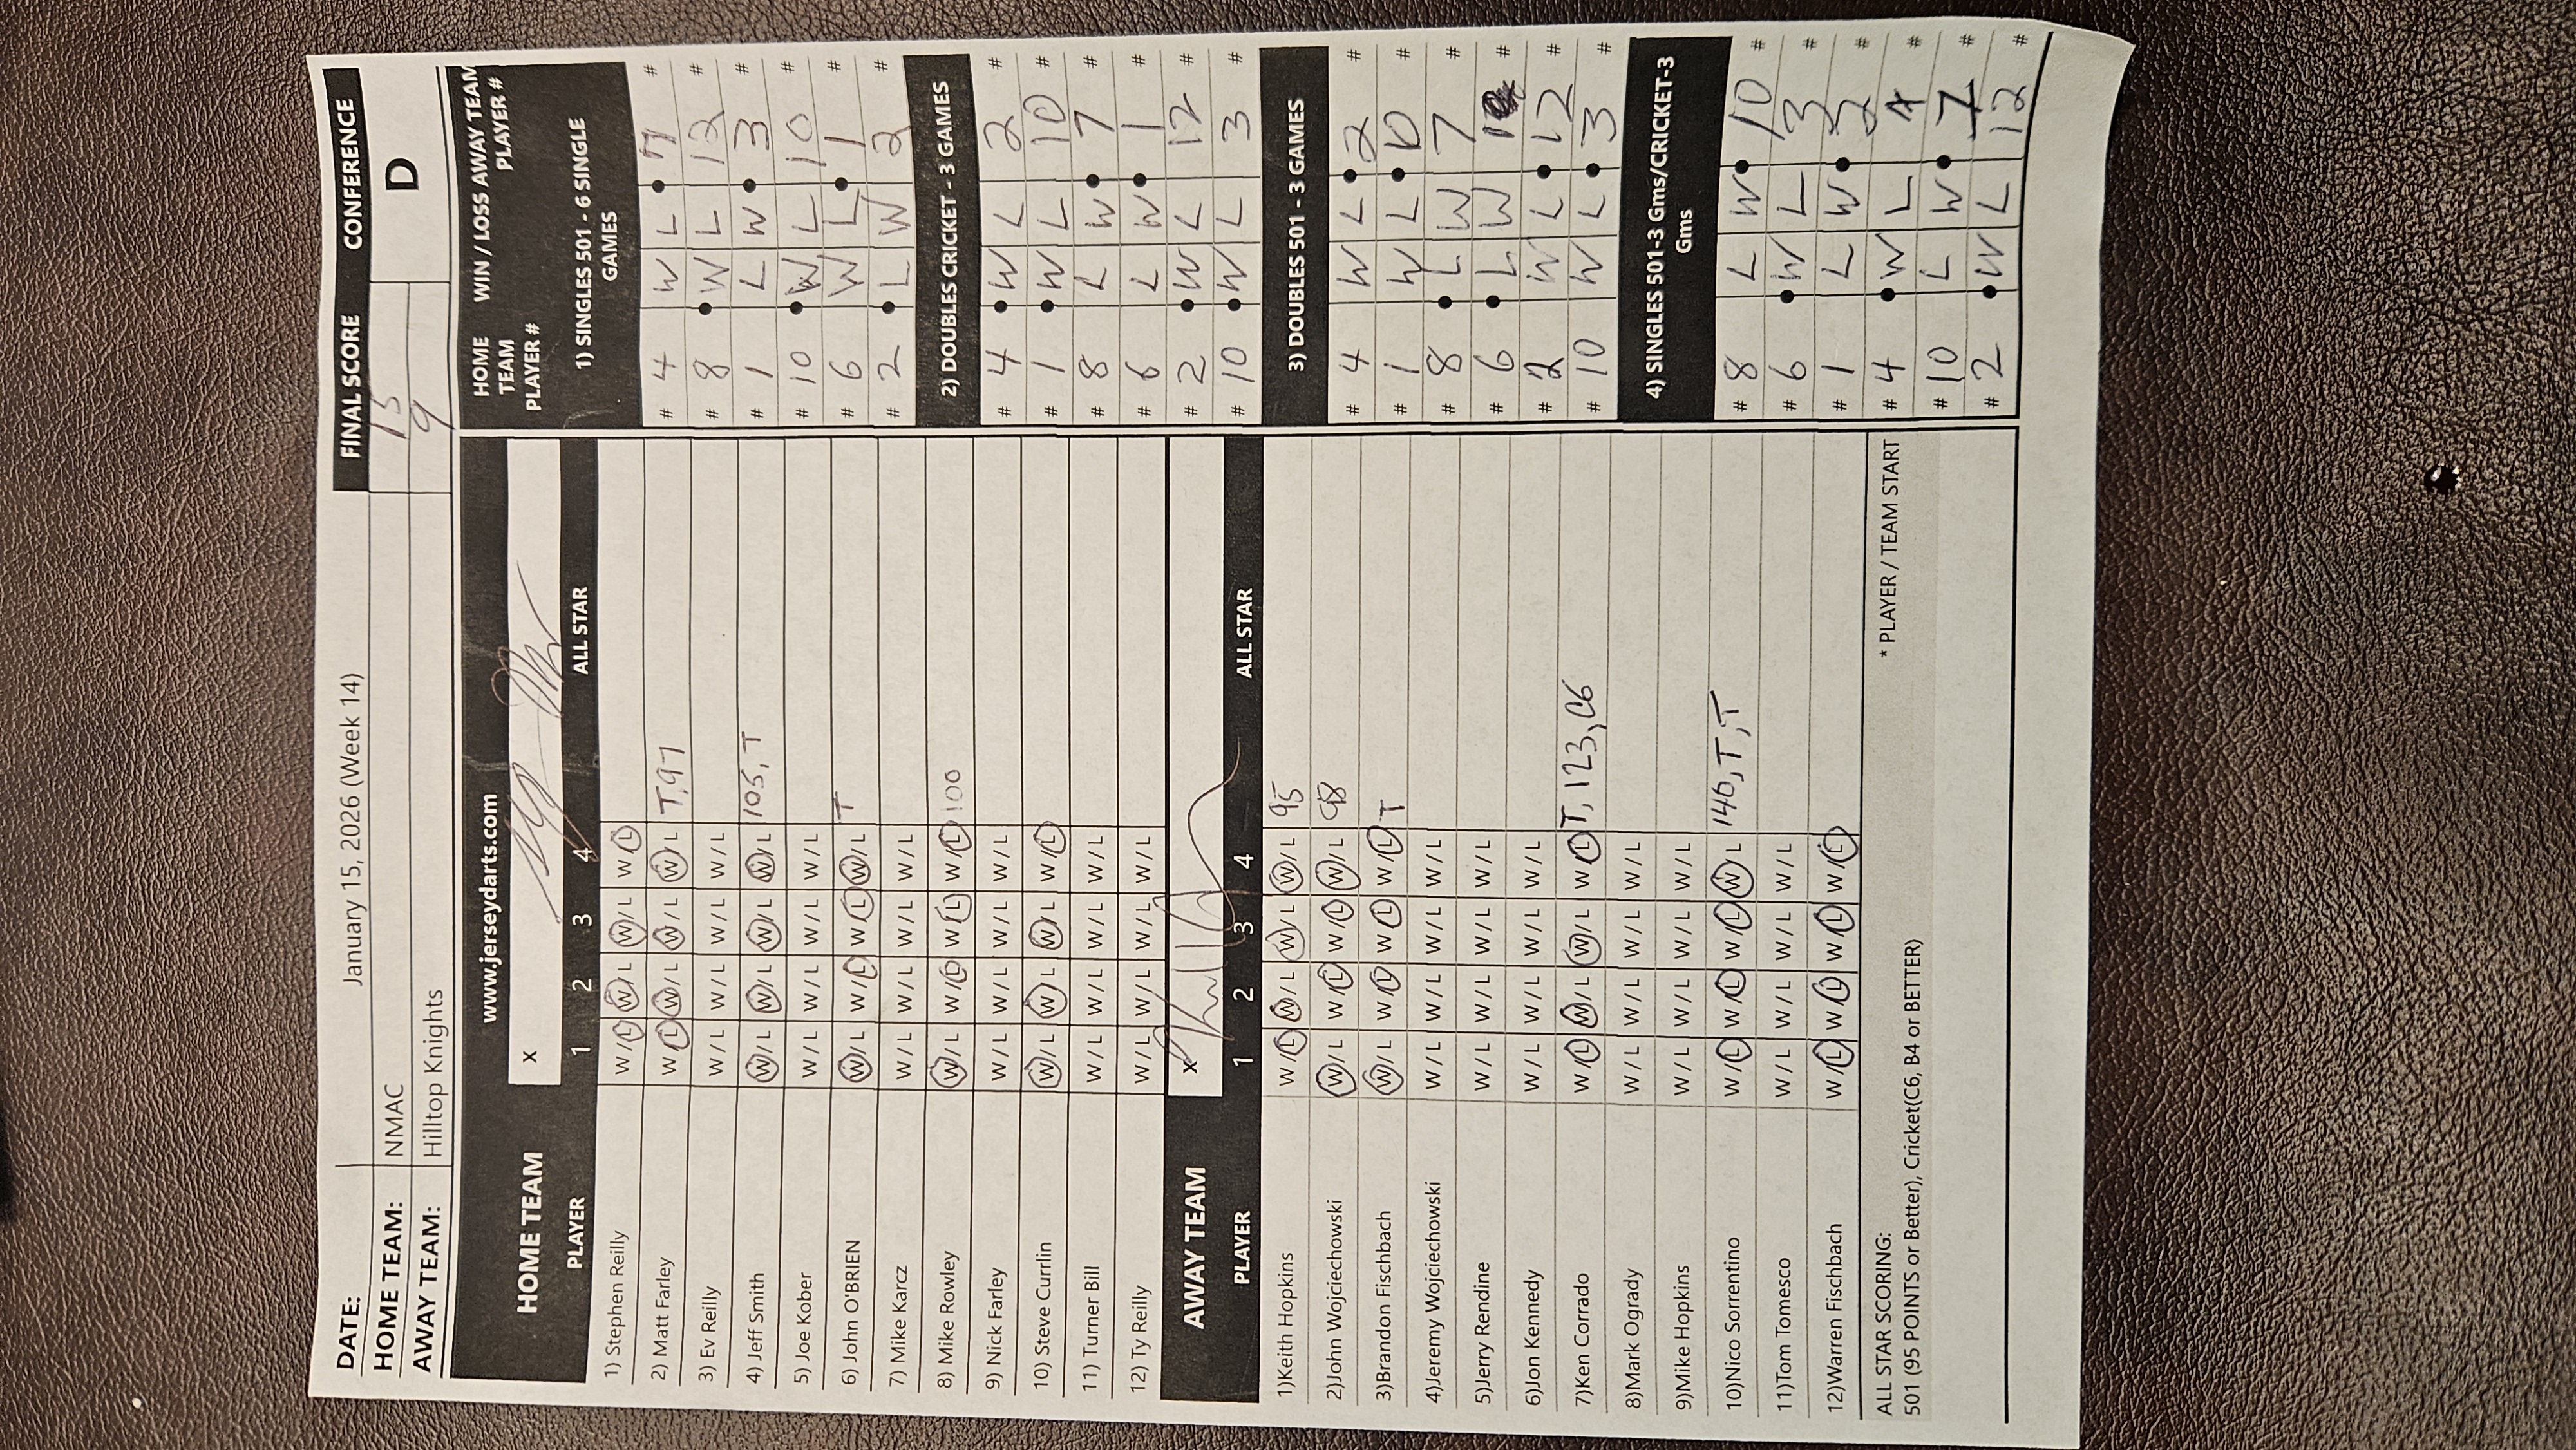 DATE: January 15, 2026 (Week 14) FINAL SCORE CONFERENCE
HOME TEAM: NMAC 15 D
AWAY TEAM: Hilltop Knights 9
www.jerseydarts.com
HOME TEAM X
PLAYER 1 2 3 4 ALL STAR
1) Stephen Reilly W/L W/L W/L W/L
2) Matt Farley W/L W/L W/L W/L T,97
3) Ev Reilly W/L W/L W/L W/L
4) Jeff Smith W/L W/L W/L W/L 105, T
5) Joe Kober W/L W/L W/L W/L
6) John O'BRIEN W/L W/L W/L W/L T
7) Mike Karcz W/L W/L W/L W/L
8) Mike Rowley W/L W/L W/L W/L 100
9) Nick Farley W/L W/L W/L W/L
10) Steve Currlin W/L W/L W/L W/L
11) Turner Bill W/L W/L W/L W/L
12) Ty Reilly W/L W/L W/L W/L
AWAY TEAM X
PLAYER 1 2 3 4 ALL STAR
1)Keith Hopkins W/L W/L W/L W/L 95
2)John Wojciechowski W/L W/L W/L W/L 98
3)Brandon Fischbach W/L W/L W/L W/L T
4)Jeremy Wojciechowski W/L W/L W/L W/L
5)Jerry Rendine W/L W/L W/L W/L
6)Jon Kennedy W/L W/L W/L W/L
7)Ken Corrado W/L W/L W/L W/L T, 123, C6
8)Mark Ogrady W/L W/L W/L W/L
9)Mike Hopkins W/L W/L W/L W/L
10)Nico Sorrentino W/L W/L W/L W/L 140, T, T
11)Tom Tomesco W/L W/L W/L W/L
12)Warren Fischbach W/L W/L W/L W/L
ALL STAR SCORING: * PLAYER / TEAM START
501 (95 POINTS or Better), Cricket(C6, B4 or BETTER)
HOME TEAM PLAYER # WIN / LOSS AWAY TEAM PLAYER #
1) SINGLES 501 - 6 SINGLE GAMES
# 4 W L 7 #
# 8 W L 12 #
# 1 L W 3 #
# 10 W L 10 #
# 6 W L 1 #
# 2 L W 2 #
2) DOUBLES CRICKET - 3 GAMES
# 4 W L 2 #
# 1 W L 10 #
# 8 L W 7 #
# 6 L W 1 #
# 2 W L 12 #
# 10 W L 3 #
3) DOUBLES 501 - 3 GAMES
# 4 W L 2 #
# 1 W L 10 #
# 8 L W 7 #
# 6 L W #
# 2 W L 12 #
# 10 W L 3 #
4) SINGLES 501-3 Gms/CRICKET-3 Gms
# 8 L W 10 #
# 6 W L 3 #
# 1 L W 2 #
# 4 W L #
# 10 L W #
# 2 W L 12 #